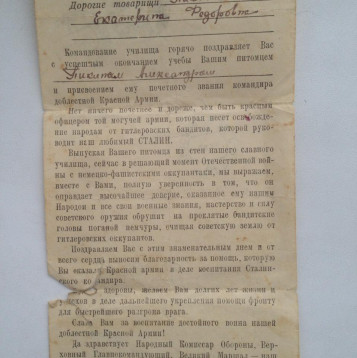 Дорогие товарищи
Екатерина Федоровна
Командование училища горячо поздравляет Вас
с успешным окончанием учебы Вашим питомцем
и присвоением ему почетного звания командира
доблестной Красной Армии.
Нет ничего почетнее и дороже, чем быть красным
офицером той могучей армии, которая несет освобожде-
ние народам от гитлеровских бандитов, которой руко-
водит наш любимый СТАЛИН.
Выпуская Вашего питомца из стен нашего славного
училища, сейчас в решающий момент Отечественной вой-
ны с немецко-фашистскими оккупантами, мы выражаем,
вместе с Вами, полную уверенность в том, что он
оправдает высочайшее доверие, оказанное ему нашим
Народом и все свои военные знания, мастерство и силу
советского оружия обрушит на проклятые бандитские
головы поганой немчуры, очищая советскую землю от
гитлеровских оккупантов.
Поздравляем Вас с этим знаменательным днем и от
всего сердца выносим благодарность за помощь, которую
Вы оказали Красной Армии в деле воспитания Сталин-
ского командира.
здоровы, желаем Вам долгих лет жизни и
успехов в деле дальнейшего укрепления помощи фронту
для быстрейшего разгрома врага.
Слава Вам за воспитание достойного воина нашей
доблестной Красной Армии!
Да здравствует Народный Комиссар Обороны, Вер-
ховный Главнокомандующий, Великий Маршал — наш